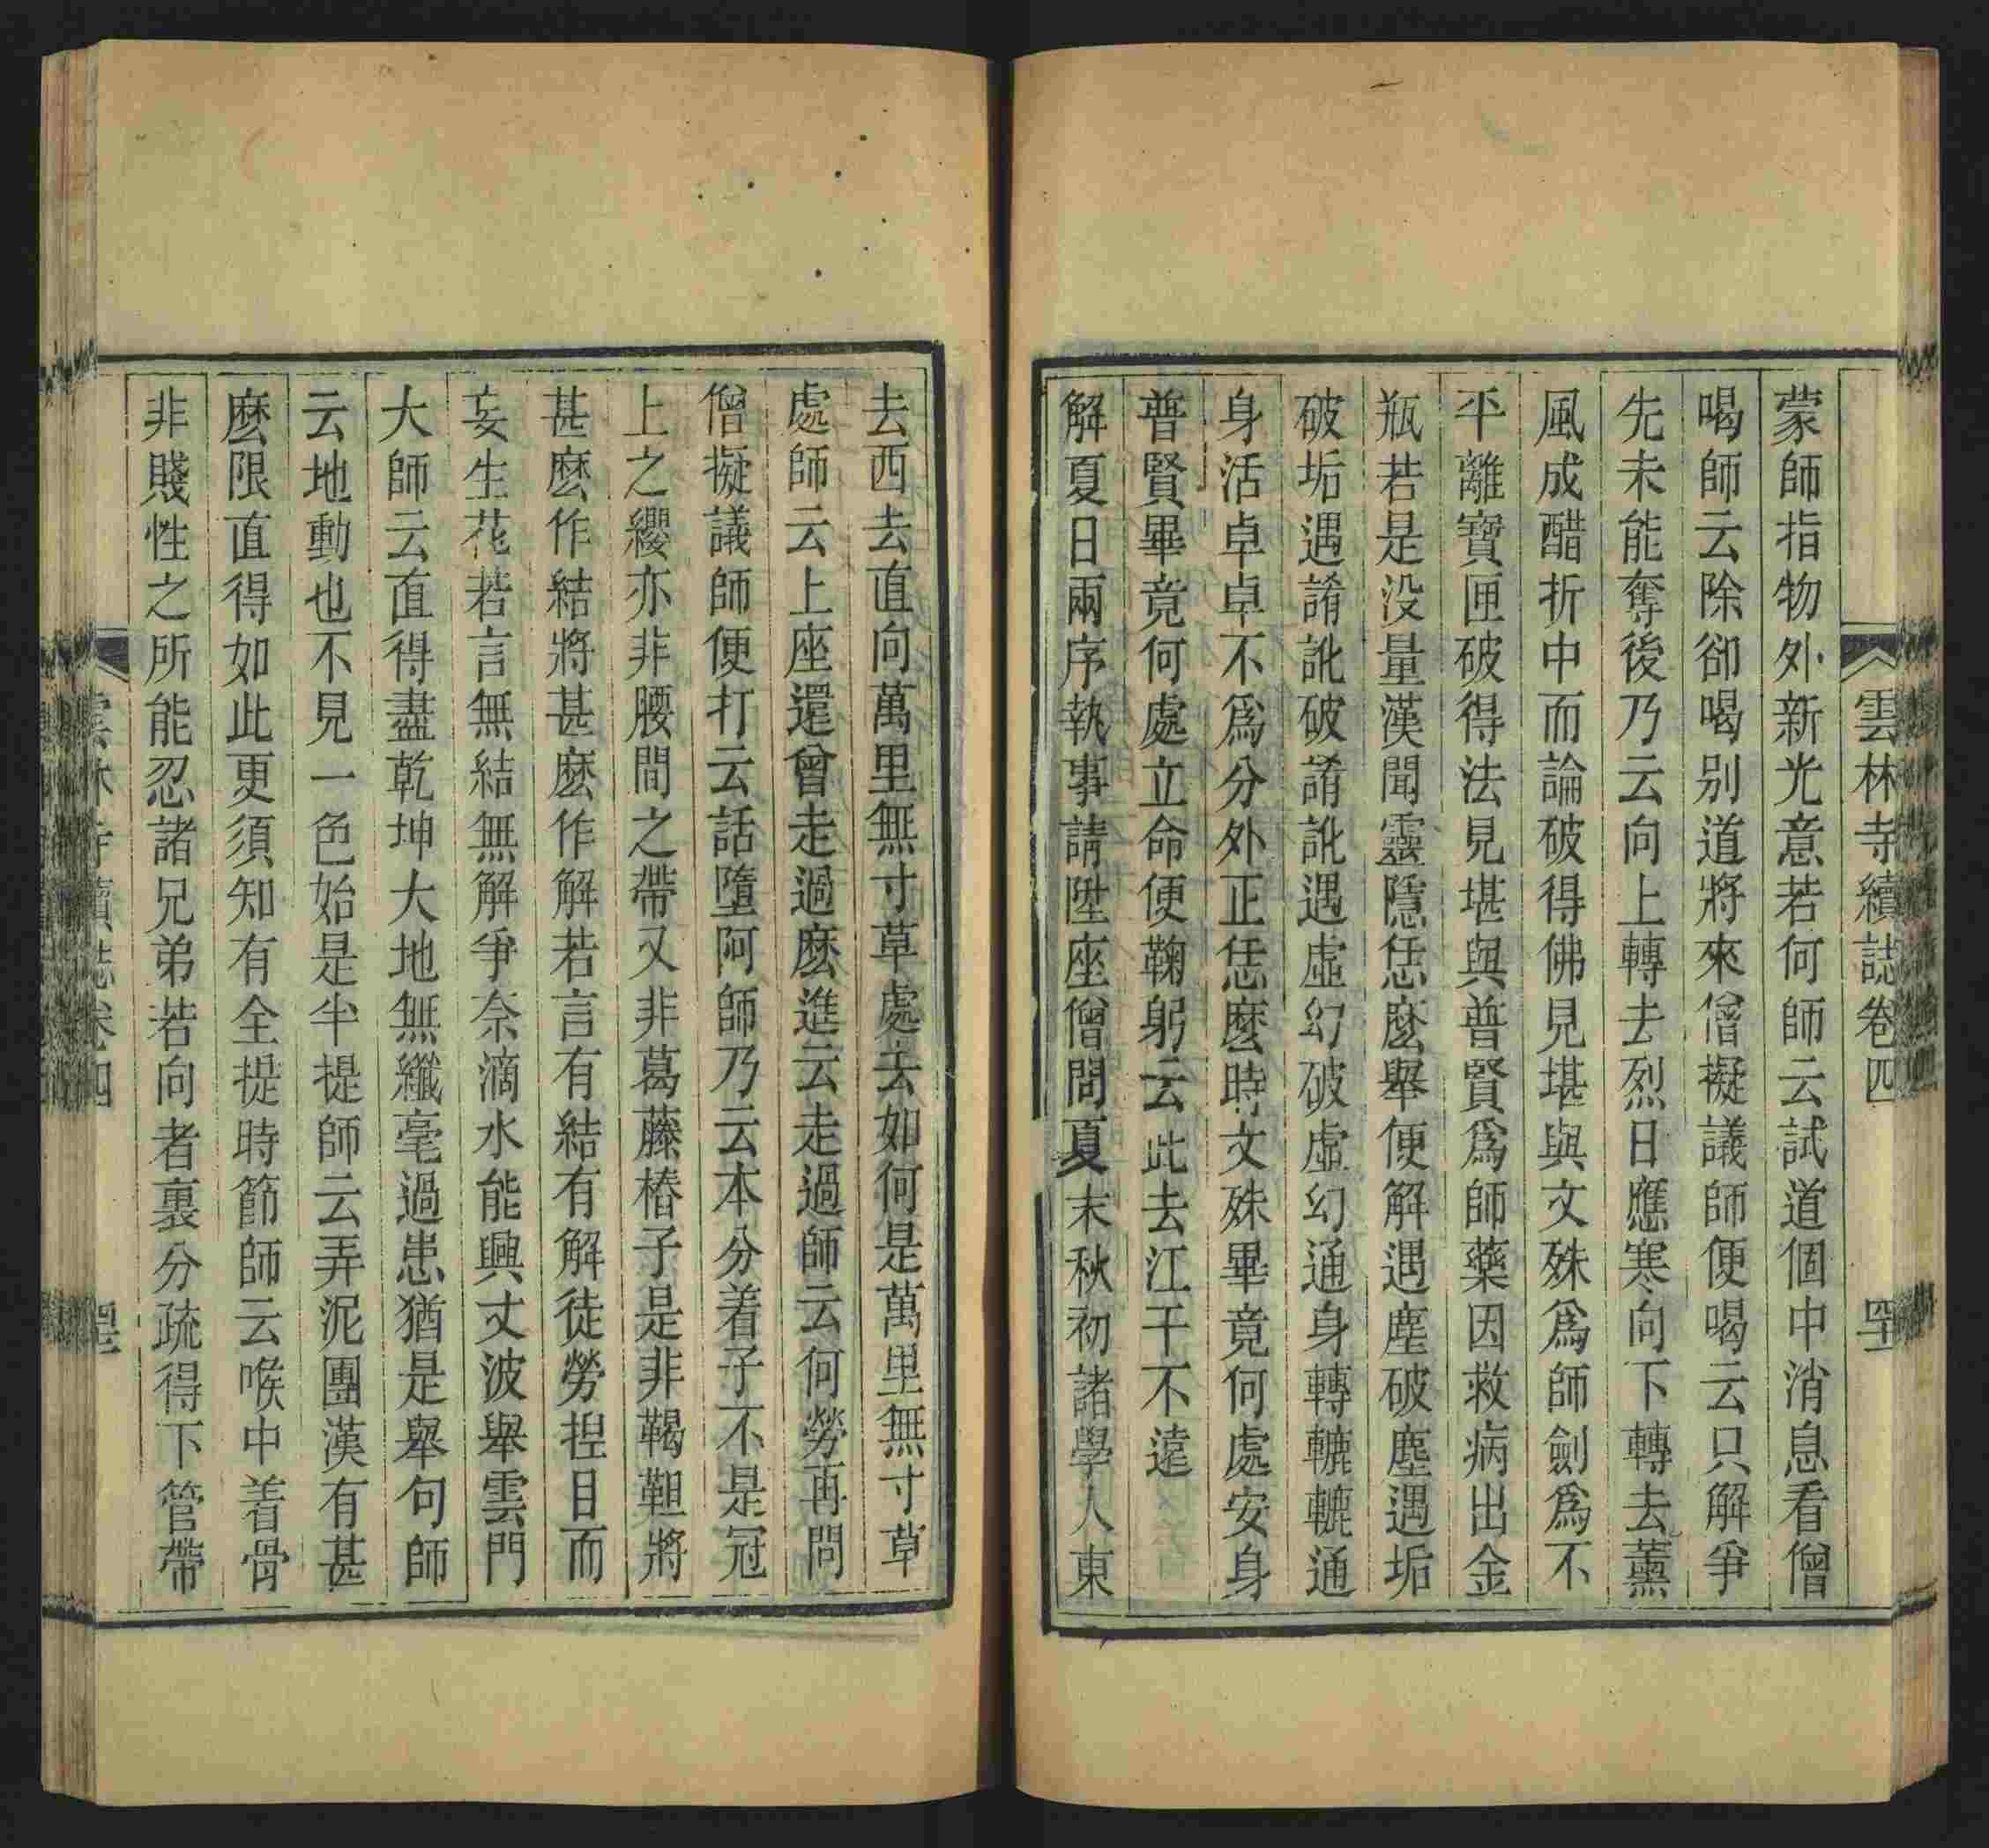 雲林寺續誌卷四
蒙師指物外新光意若何師云試道個中消息看僧
喝師云除卻喝別道將來僧擬議師便喝云只解爭
先未能奪後乃云向上轉去烈日應寒向下轉去薰
風成醋折中而論破得佛見堪與文殊爲師劍爲不
平離寶匣破得法見堪與普賢爲師藥因救病出金
瓶若是没量漢聞靈隱恁麼舉便解遇塵破塵遇垢
破垢遇誵訛破誵訛遇虛幻破虛幻通身轉轆轆通
身活卓卓不爲分外正恁麼時文殊畢竟何處安身
普賢畢竟何處立命便鞠躬云此去江干不遠
解夏日兩序執事請陞座僧問夏末秋初諸學人東
去西去直向萬里無寸草處去如何是萬里無寸草
處師云上座還曾走過麽進云走過師云何勞再問
僧擬議師便打云話墮阿師乃云本分着子不是冠
上之纓亦非腰間之帶又非葛藤樁子是非鞨鞓將
甚麽作結將甚麽作解若言有結有解徒勞揑目而
妄生花若言無結無解爭奈滴水能興丈波舉雲門
大師云直得盡乾坤大地無纖毫過患猶是舉句師
云地動也不見一色始是半提師云弄泥團漢有甚
麽限直得如此更須知有全提時節師云喉中着骨
非賤性之所能忍諸兄弟若向者裏分疏得下管帶